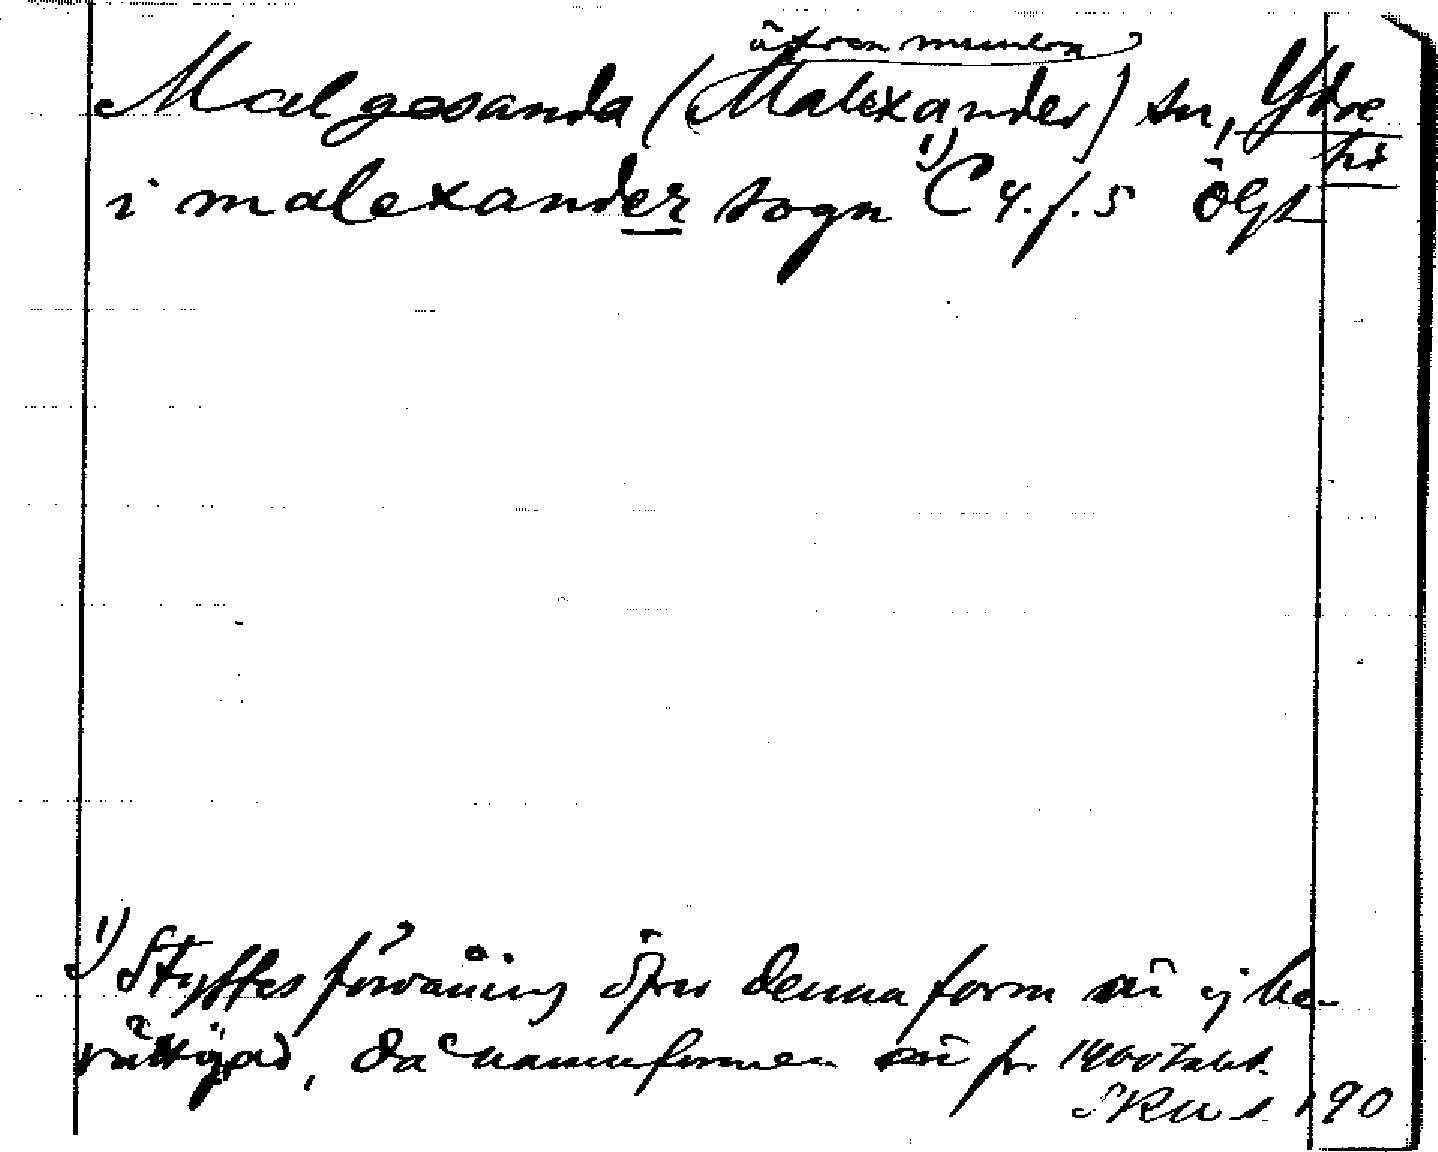 äfven munlon
Malgosanda (Malexander) sn, Ydre
hd
i malexander sogn 1) C 4. f. 5 Ögl
1) Styffes förvåning öfver denna form är ej be-
rättigad, då namnformen är fr. 1400talet.
SRU s. 190